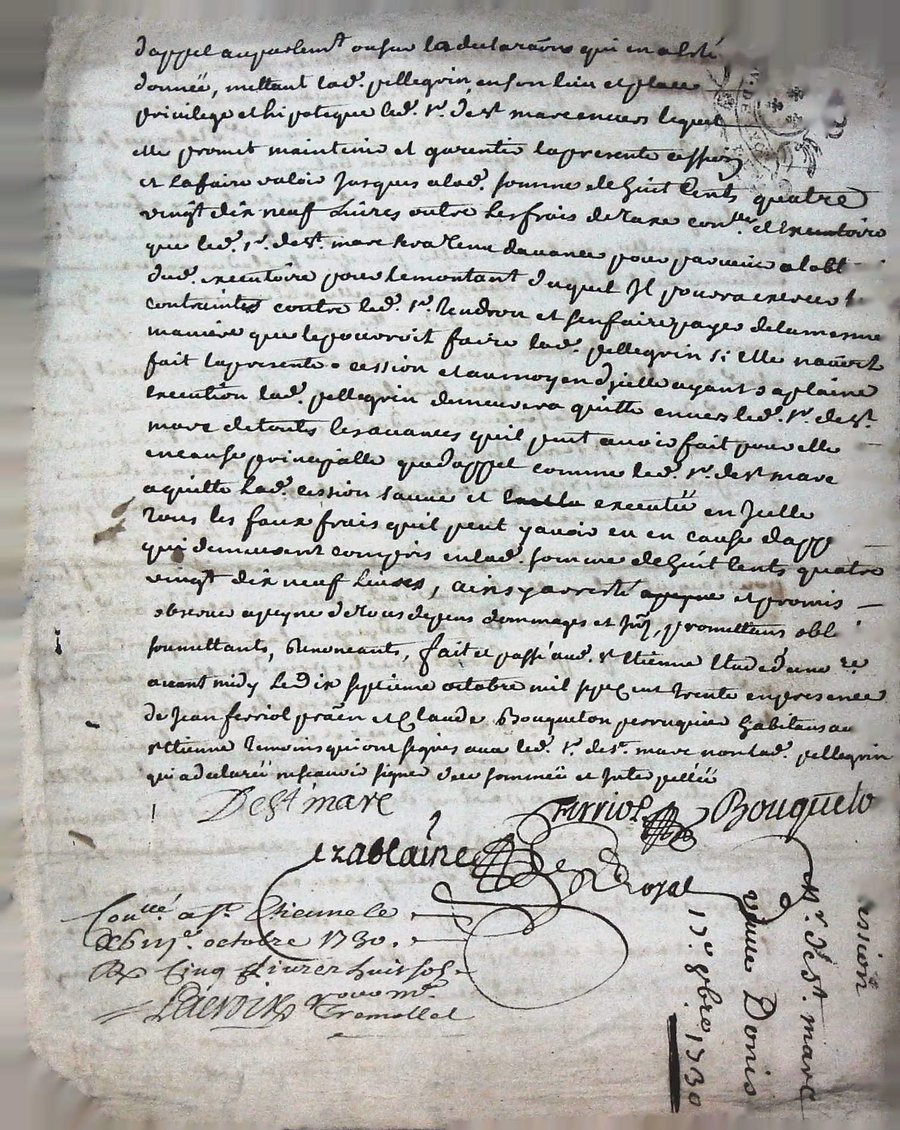 d'appel au parlemt ou sur les declaraons qui en a esté
donnéé, mettant lad. pellegrin, en son lieu et place
privilege et hipoteque led. Sr. de St marc envers lequel
elle promet maintenir et garentir la presente cession
et la faire valoir Jusques a lad. somme de huit Cents quatre
vingt dix neuf Livres outre les frais de taxe conlle et Executoire
que led. Sr. de St marc sera tenu d'avancer pour parvenir a lobt
dud. executoire pour le montant duquel Il pourra exercer
contraintes contre led. Sr. tendron et sen faire payer de la mesme
maniere que le pouvroit faire lad. pellegrin si elle navoit
fait la presente cession et au moyen d'jcelle ayant sa plaine
execution lad. pellegrin demeurera quitte envers led. Sr. de St.
marc de touts les avances qu'il peut avoir fait pour elle
en cause principalle que d'appel comme led. Sr. de St marc
aquitte lad. cession sauve et executéé en Jcelle
tous les faux frais quil peut y avoir eu en cause dapp
qui demeurent compris en lad. somme de huit Cents quatre
vingt dix neuf Livres, ainsy arresté et promis
observer a peyne de tous depens dommages et Int, promettans obl
soumettants, Renonceants, fait et passé aud. St Etienne Etude dud. no re
avant midy Le Dix septieme octobre mil sept Cent trente en presence
de Jean ferriol praen et Claude Bouqueton perruquier habitans au
St Etienne temoins qui ont signés avec led. Sr. de St. marc non lad. pellegrin
qui a declaréé ne scavoir signer de ce somméé et Interpelléé
De St marc
Ferriol
Bouqueto
Royal
Conllé a St. Etienne le
octobre 1730.
Rx Cinq Livres huit sols
Lacroix
Tremollet
17e 8bre 1730
veuve Donis
Sr. de St. marc
ession